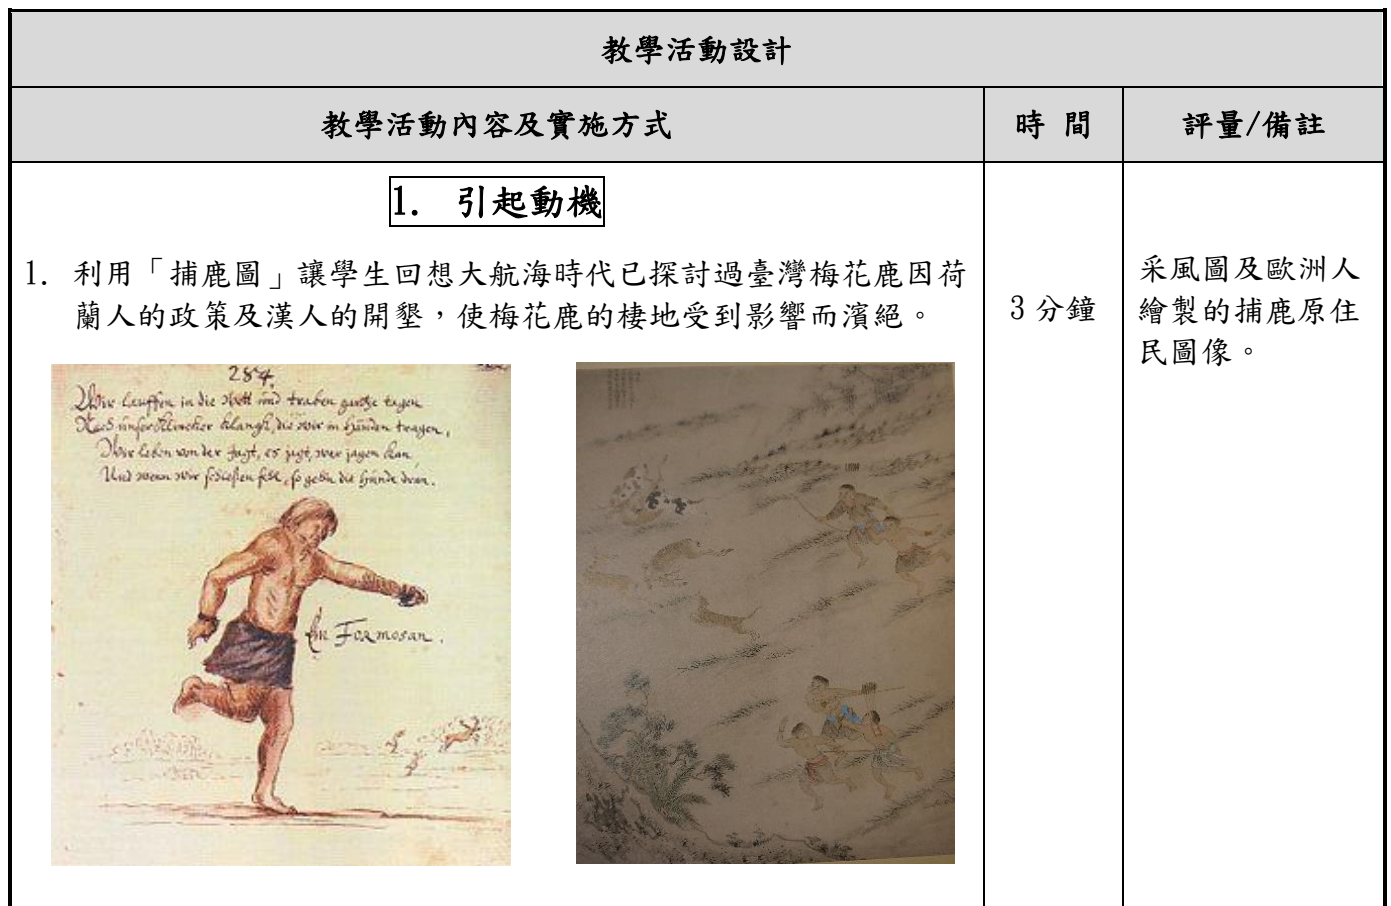 教學活動設計
教學活動內容及實施方式
時 間
評量/備註
1. 引起動機
1. 利用「捕鹿圖」讓學生回想大航海時代已探討過臺灣梅花鹿因荷
蘭人的政策及漢人的開墾，使梅花鹿的棲地受到影響而瀕絕。
3 分鐘
采風圖及歐洲人
繪製的捕鹿原住
民圖像。
284.
Wir lauffen in die Wett und traben gantze tagen
Nach unser Klincker Klangh, die wir in Händen tragen,
Wir leben von der Jagt, es jagt, wer jagen kan
Und wenn wir schießen fehl, so gehn die Hände dran.
Ein Formosan.